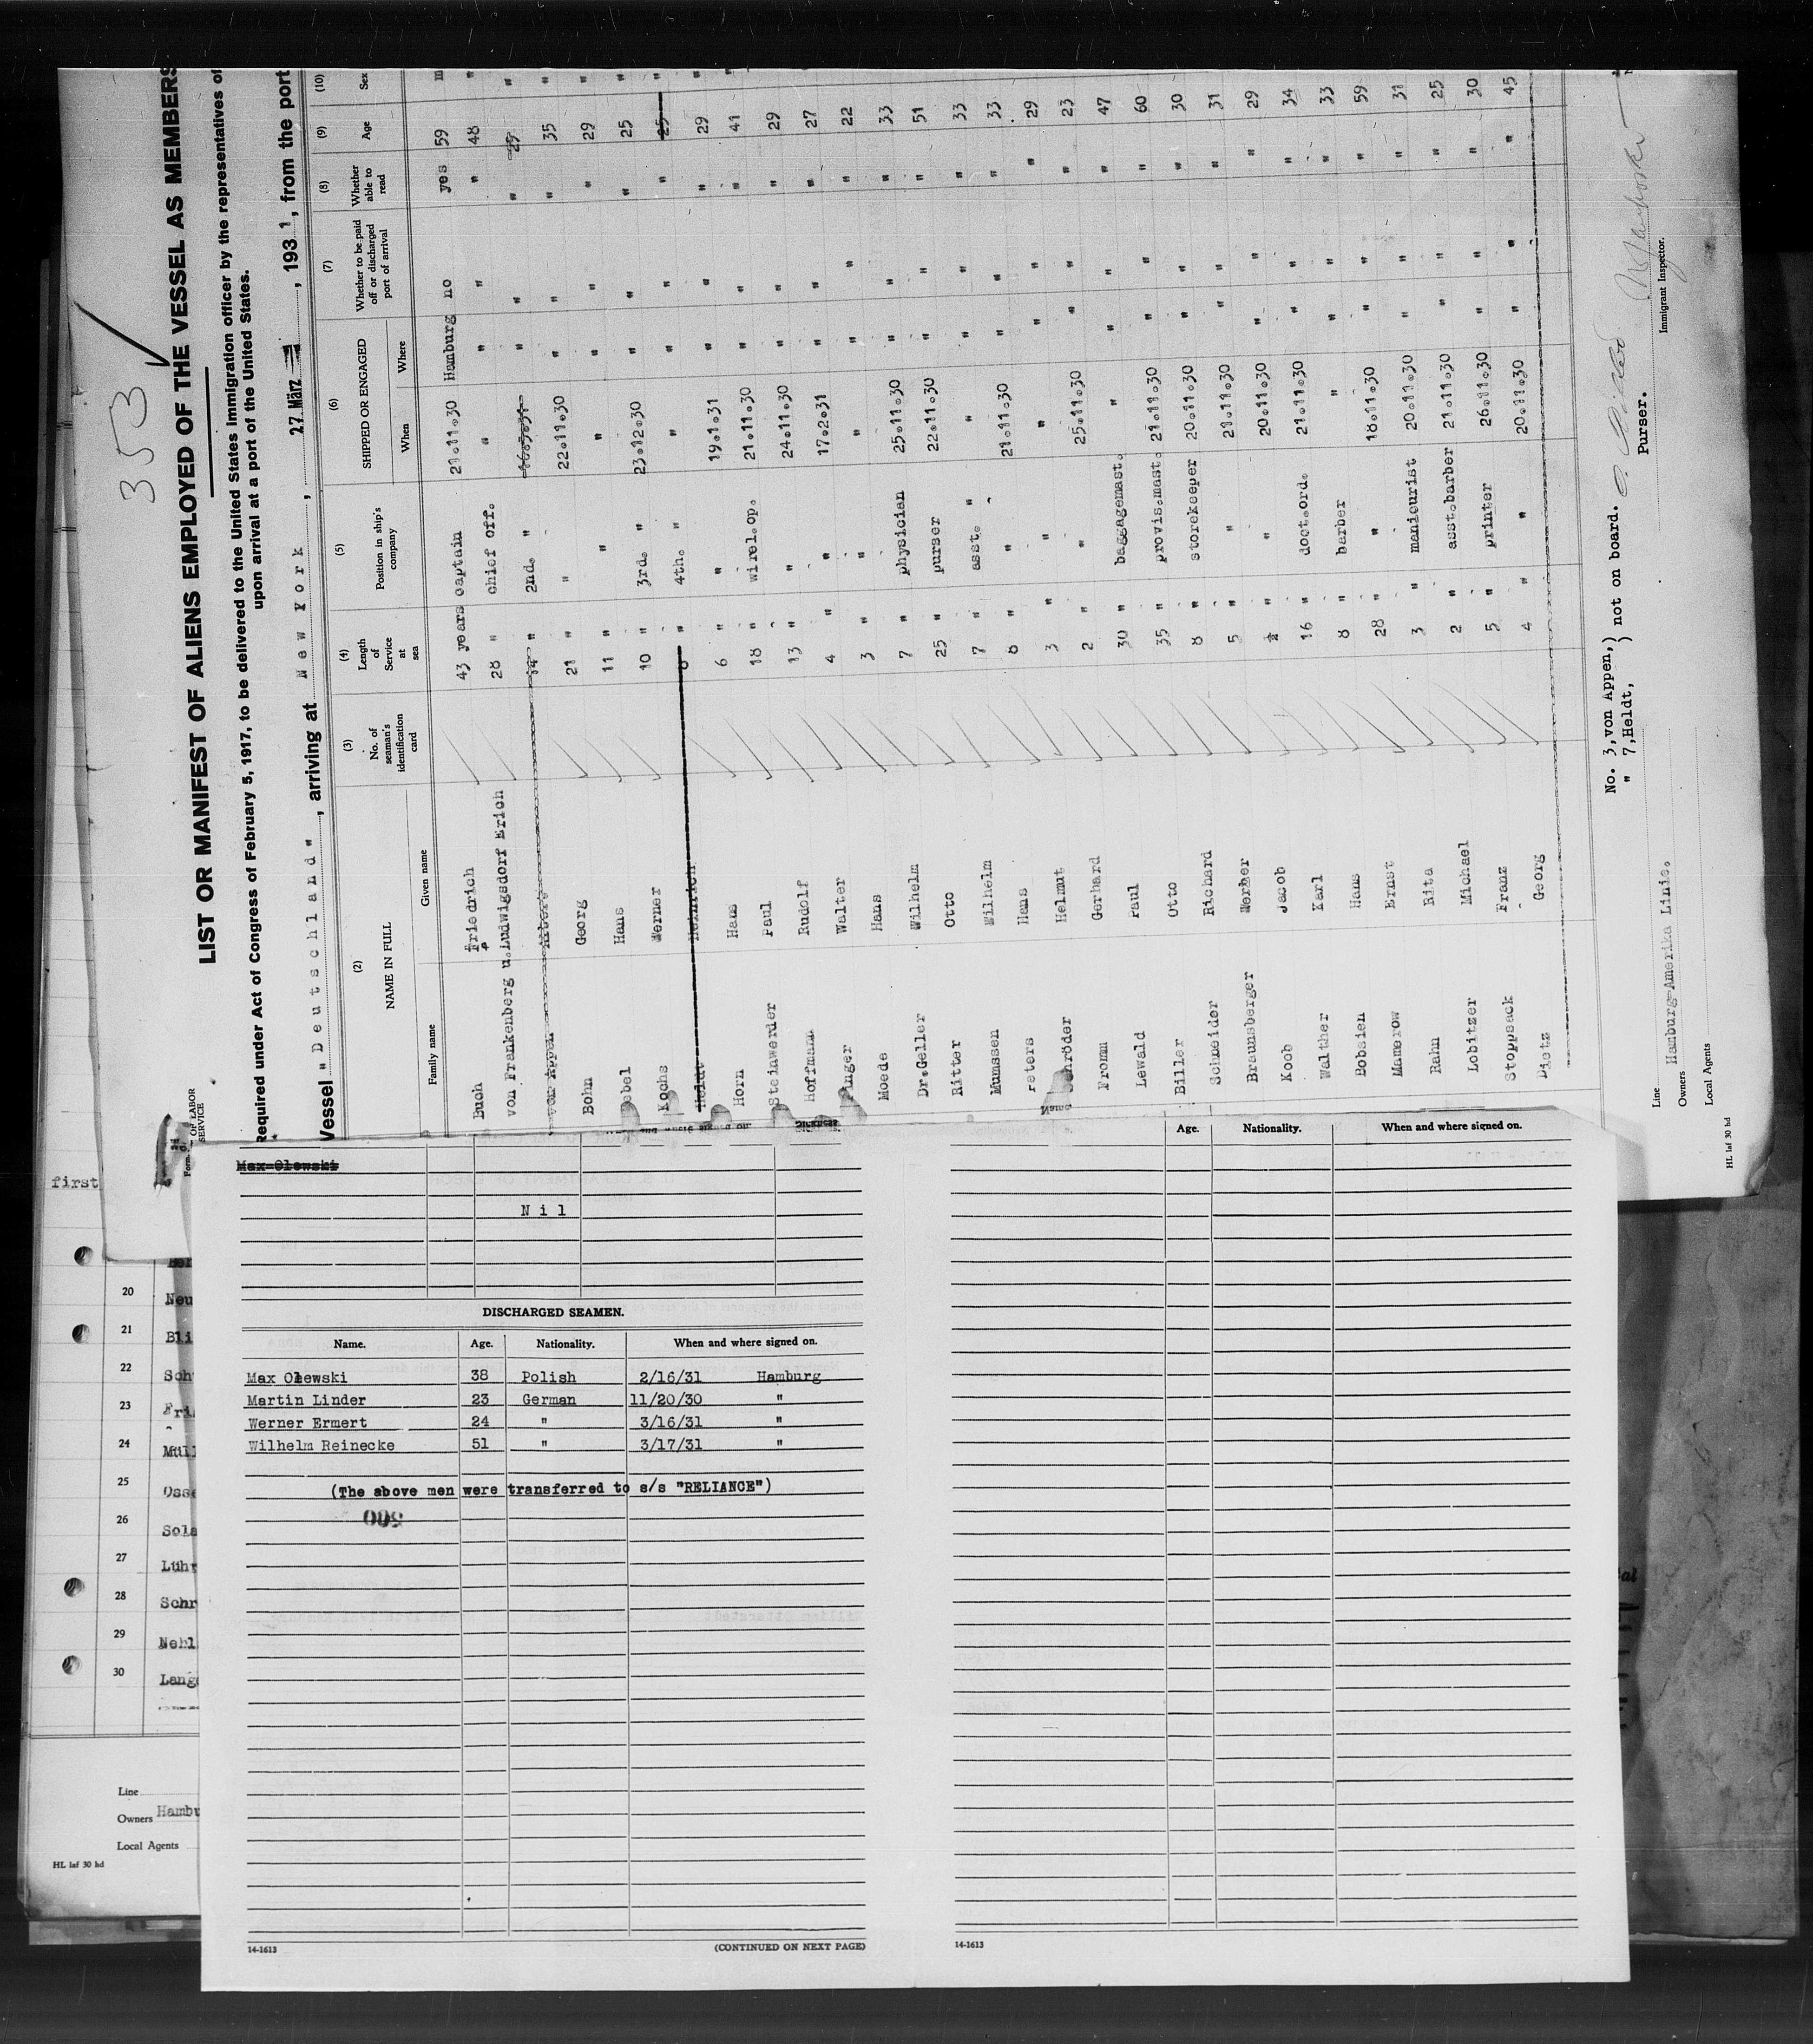 353
LIST OR MANIFEST OF ALIENS EMPLOYED OF THE VESSEL AS MEMBERS
Required under Act of Congress of February 5, 1917, to be delivered to the United States Immigration officer by the representatives of
upon arrival at a port of the United States.
Vessel "Deutschland", arriving at New York, 27 März, 1931, from the port
(2) (3) (4) (5) (6) (7) (8) (9) (10)
NAME IN FULL No. of seaman's identification card Length of Service at sea Position in ship's company SHIPPED OR ENGAGED Whether to be paid off or discharged port of arrival Whether able to read Age Sex
Family name Given name When Where
Buch Friedrich 43 years captain 21.11.30 Hamburg no yes 59 m
von Frankenberg u.Ludwigsdorf Erich 28 " chief off. " " " " 48 "
von Appen 14 " 2nd. " " " " "
Bohn Georg 21 " " 22.11.30 " " " 35 "
Hans 11 " " " " " " 29 "
Kochs Werner 10 " 3rd. " 23.12.30 " " " 25 "
Heldt Heinrich 8 " 4th. " " " " " 25 "
Horn Hans 6 " " 19.1.31 " " " 29 "
Steinwerder Paul 18 " wirel.op. 21.11.30 " " " 41 "
Hoffmann Rudolf 13 " " 24.11.30 " " " 29
Finger Walter 4 " " 17.2.31 " " " 27
Moede Hans 3 " " " " " " 22
Dr.Geller Wilhelm 7 " physician 25.11.30 " " " 33
Ritter Otto 25 " purser 22.11.30 " " " 51
Mumssen Wilhelm 7 " asst. " " " " " 33
Peters Hans 8 " " 21.11.30 " " " 33
Schröder Helmut 3 " " " " " " 29
Fromm Gerhard 2 " " 25.11.30 " " " 23
Lewald Paul 30 " baggagemast. " " " " 47
Biller Otto 35 " provis.mast. 21.11.30 " " " 60
Schneider Richard 8 " storekeeper 20.11.30 " " " 30
Braunsberger Werner 5 " " 21.11.30 " " " 31
Koob Jacob ½ " " 20.11.30 " " " 29
Walther Karl 16 " doct.ord. 21.11.30 " " " 34
Bobsien Hans 8 " barber " " " " 33
Mamerow Ernst 28 " " 18.11.30 " " " 59
Rahn Rita 3 " manicurist 20.11.30 " " " 31
Lobitzer Michael 2 " asst.barber 21.11.30 " " " 25
Stoppsack Franz 5 " printer 26.11.30 " " " 30
Dietz Georg 4 " " 20.11.30 " " " 45
No. 3, von Appen, ) not on board.
" 7, Heldt, )
Purser.
Immigrant Inspector.
Line
Owners Hamburg-Amerika Linie.
Local Agents
HL laf 30 hd
OF LABOR
SERVICE
first
20 Neu
21 Bli
22 Sch
23 Fri
24 Müll
25 Osse
26 Sola
27 Lühr
28 Schr
29 Nehl
30 Lang
Line
Owners Hambu
Local Agents
HL laf 30 hd
Max Olewski
Nil
DISCHARGED SEAMEN.
Name. Age. Nationality. When and where signed on.
Max Olewski 38 Polish 2/16/31 Hamburg
Martin Linder 23 German 11/20/30 "
Werner Ermert 24 " 3/16/31 "
Wilhelm Reinecke 51 " 3/17/31 "
(The above men were transferred to s/s "RELIANCE")
14-1613 (CONTINUED ON NEXT PAGE)
Age. Nationality. When and where signed on.
14-1613